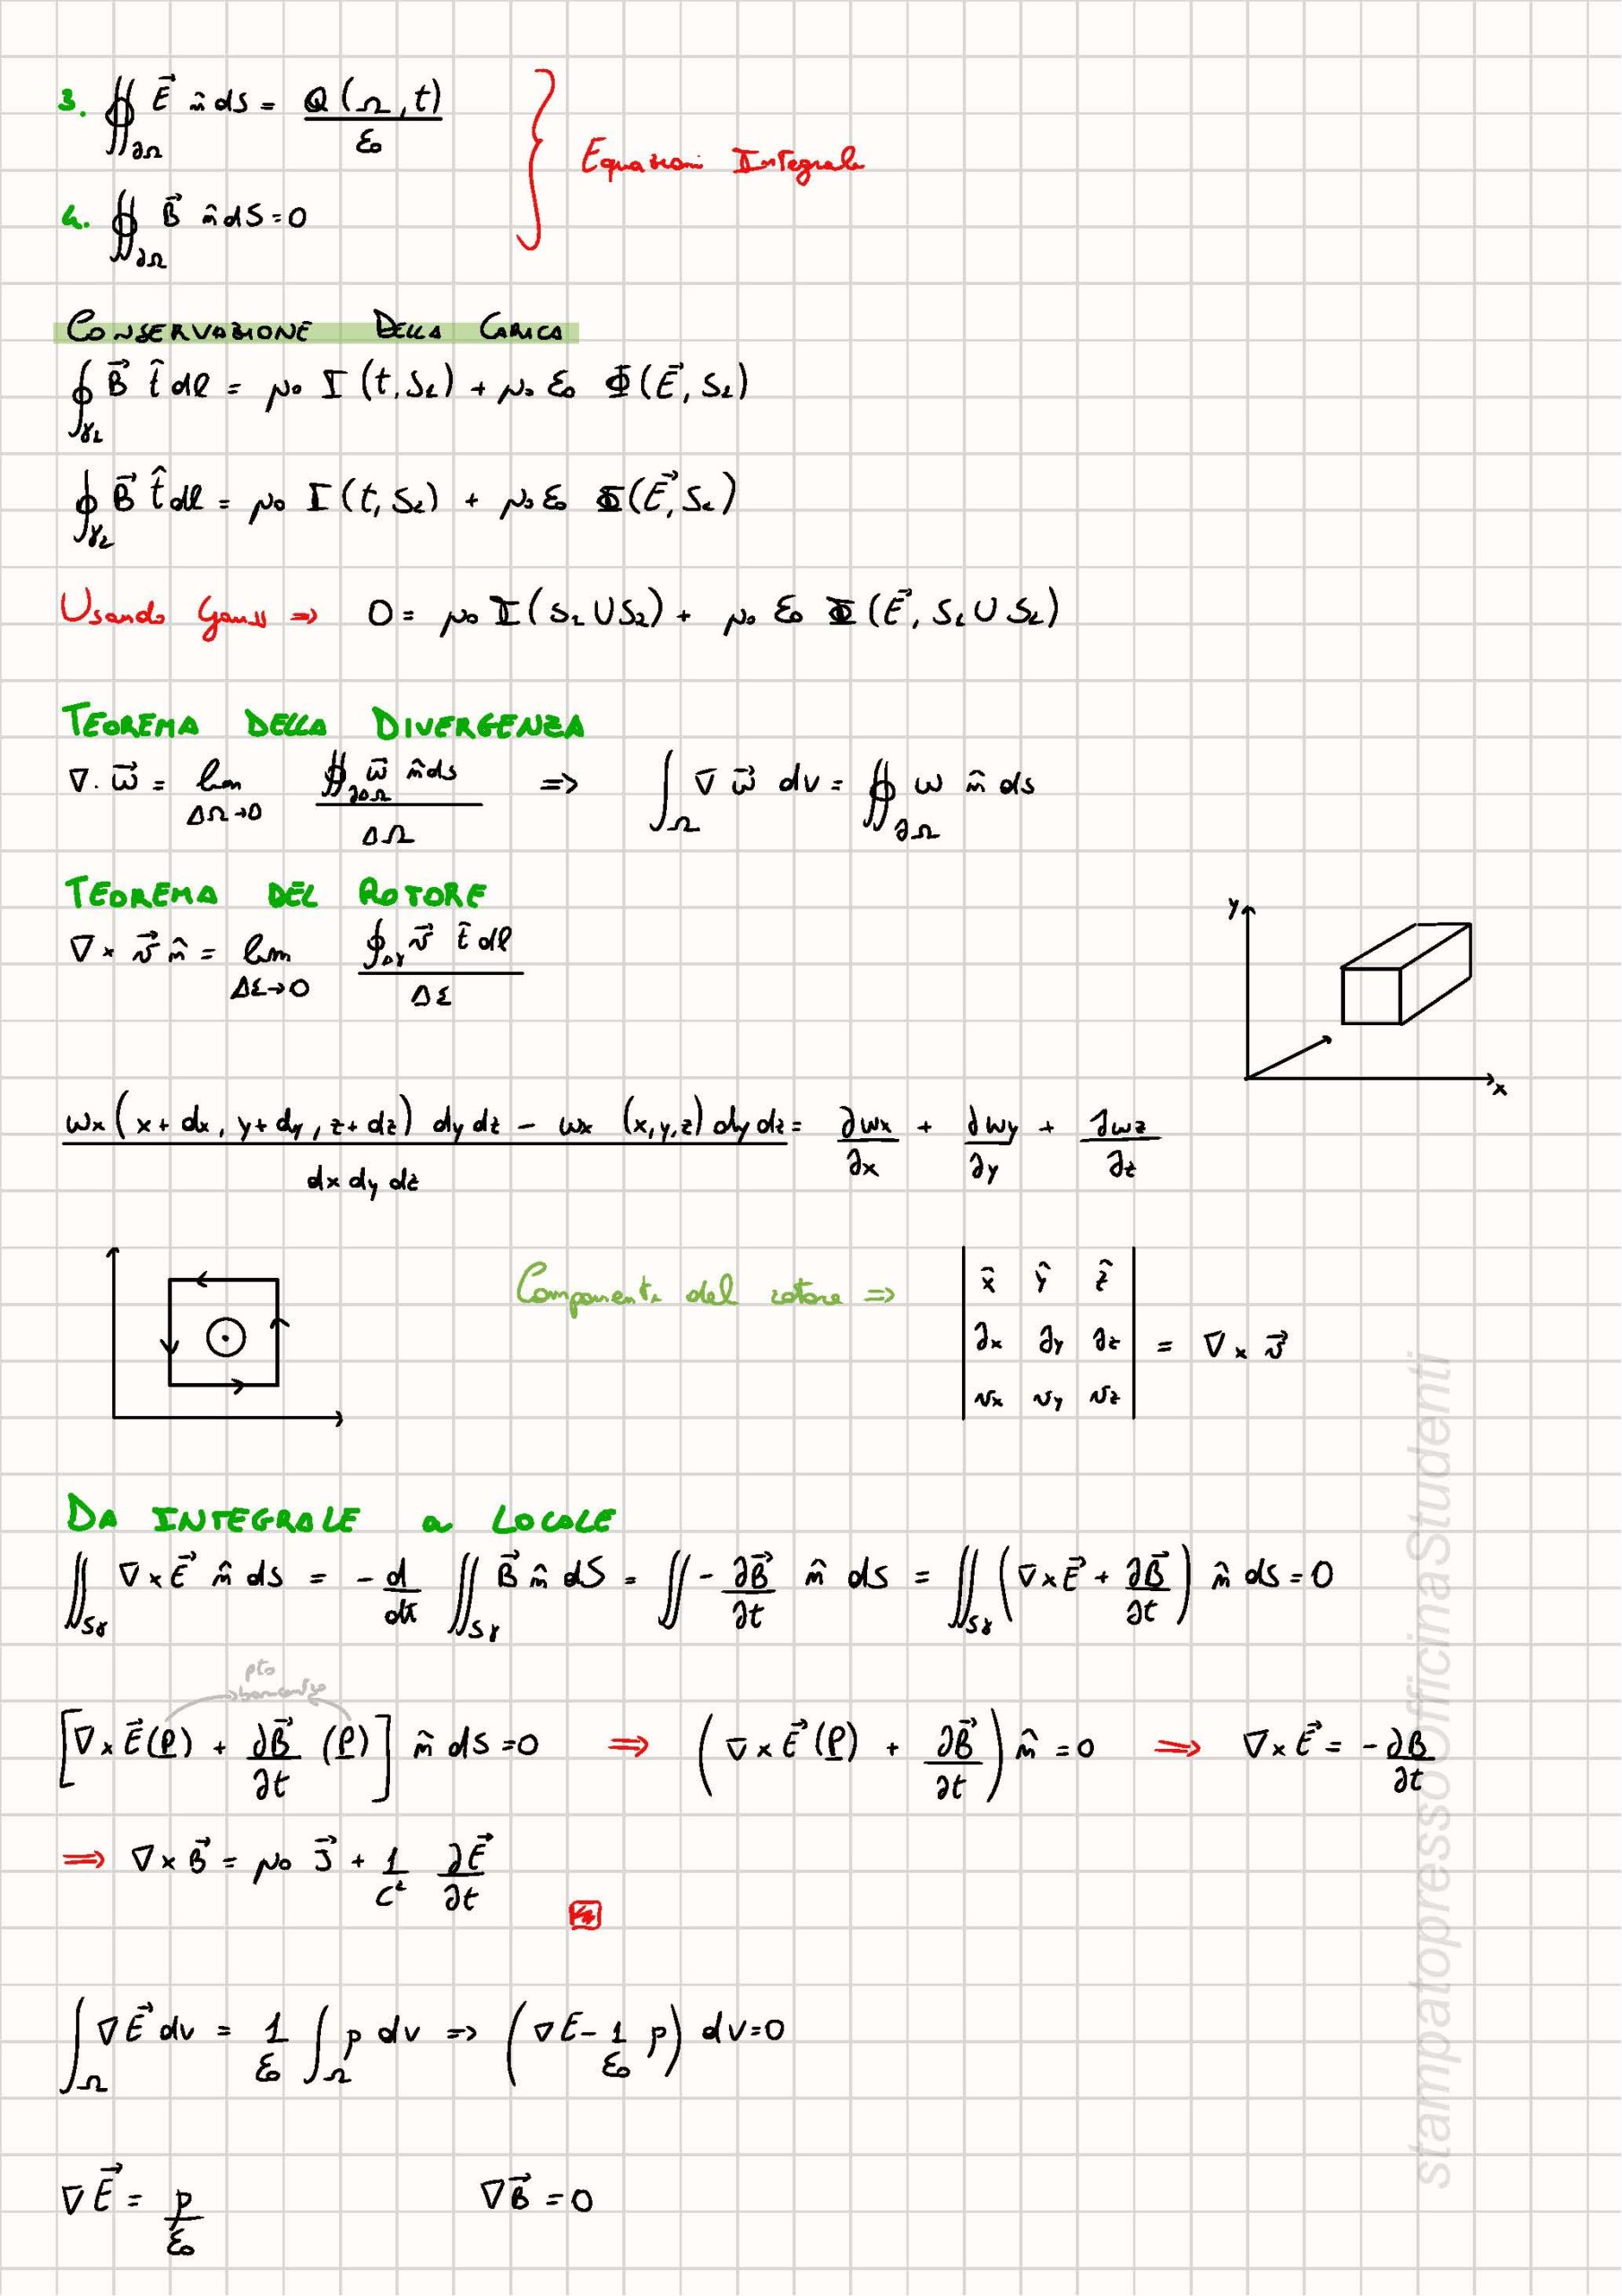 3. ∯_∂Ω E⃗ n̂ dS = Q(Ω,t)/ε₀
4. ∯_∂Ω B⃗ n̂ dS = 0
Equazioni Integrali
CONSERVAZIONE DELLA CARICA
∮_γ₁ B⃗ t̂ dl = μ₀ I(t,S₁) + μ₀ ε₀ Φ(E⃗,S₁)
∮_γ₂ B⃗ t̂ dl = μ₀ I(t,S₂) + μ₀ ε₀ Φ(E⃗,S₂)
Usando Gauss ⇒ 0 = μ₀ I(S₁ ∪ S₂) + μ₀ ε₀ Φ(E⃗, S₁ ∪ S₂)
TEOREMA DELLA DIVERGENZA
∇·w⃗ = lim_ΔΩ→0 ∯_∂ΔΩ w⃗ n̂ ds / ΔΩ ⇒ ∫_Ω ∇ w⃗ dv = ∯_∂Ω w n̂ ds
TEOREMA DEL ROTORE
∇ × v⃗ n̂ = lim_ΔΣ→0 ∮_Δγ v⃗ t̂ dl / ΔΣ
y
x
wx (x+dx, y+dy, z+dz) dy dz − wx (x,y,z) dy dz / dx dy dz = ∂wx/∂x + ∂wy/∂y + ∂wz/∂z
Componenti del rotore ⇒
| x̂ ŷ ẑ |
| ∂x ∂y ∂z | = ∇ × v⃗
| vx vy vz |
DA INTEGRALE a LOCALE
∬_Sγ ∇×E⃗ n̂ ds = − d/dt ∬_Sγ B⃗ n̂ dS = ∬ − ∂B⃗/∂t n̂ ds = ∬_Sγ (∇×E⃗ + ∂B⃗/∂t) n̂ ds = 0
pto
baricentro
[∇×E⃗(P) + ∂B⃗/∂t (P)] n̂ ds = 0 ⇒ (∇×E⃗(P) + ∂B⃗/∂t) n̂ = 0 ⇒ ∇×E⃗ = − ∂B/∂t
⇒ ∇×B⃗ = μ₀ J⃗ + 1/c² ∂E⃗/∂t
∫_Ω ∇E⃗ dv = 1/ε₀ ∫_Ω ρ dv ⇒ (∇E − 1/ε₀ ρ) dv = 0
∇E⃗ = ρ/ε₀ ∇B⃗ = 0
stampatopressoOfficinaStudenti